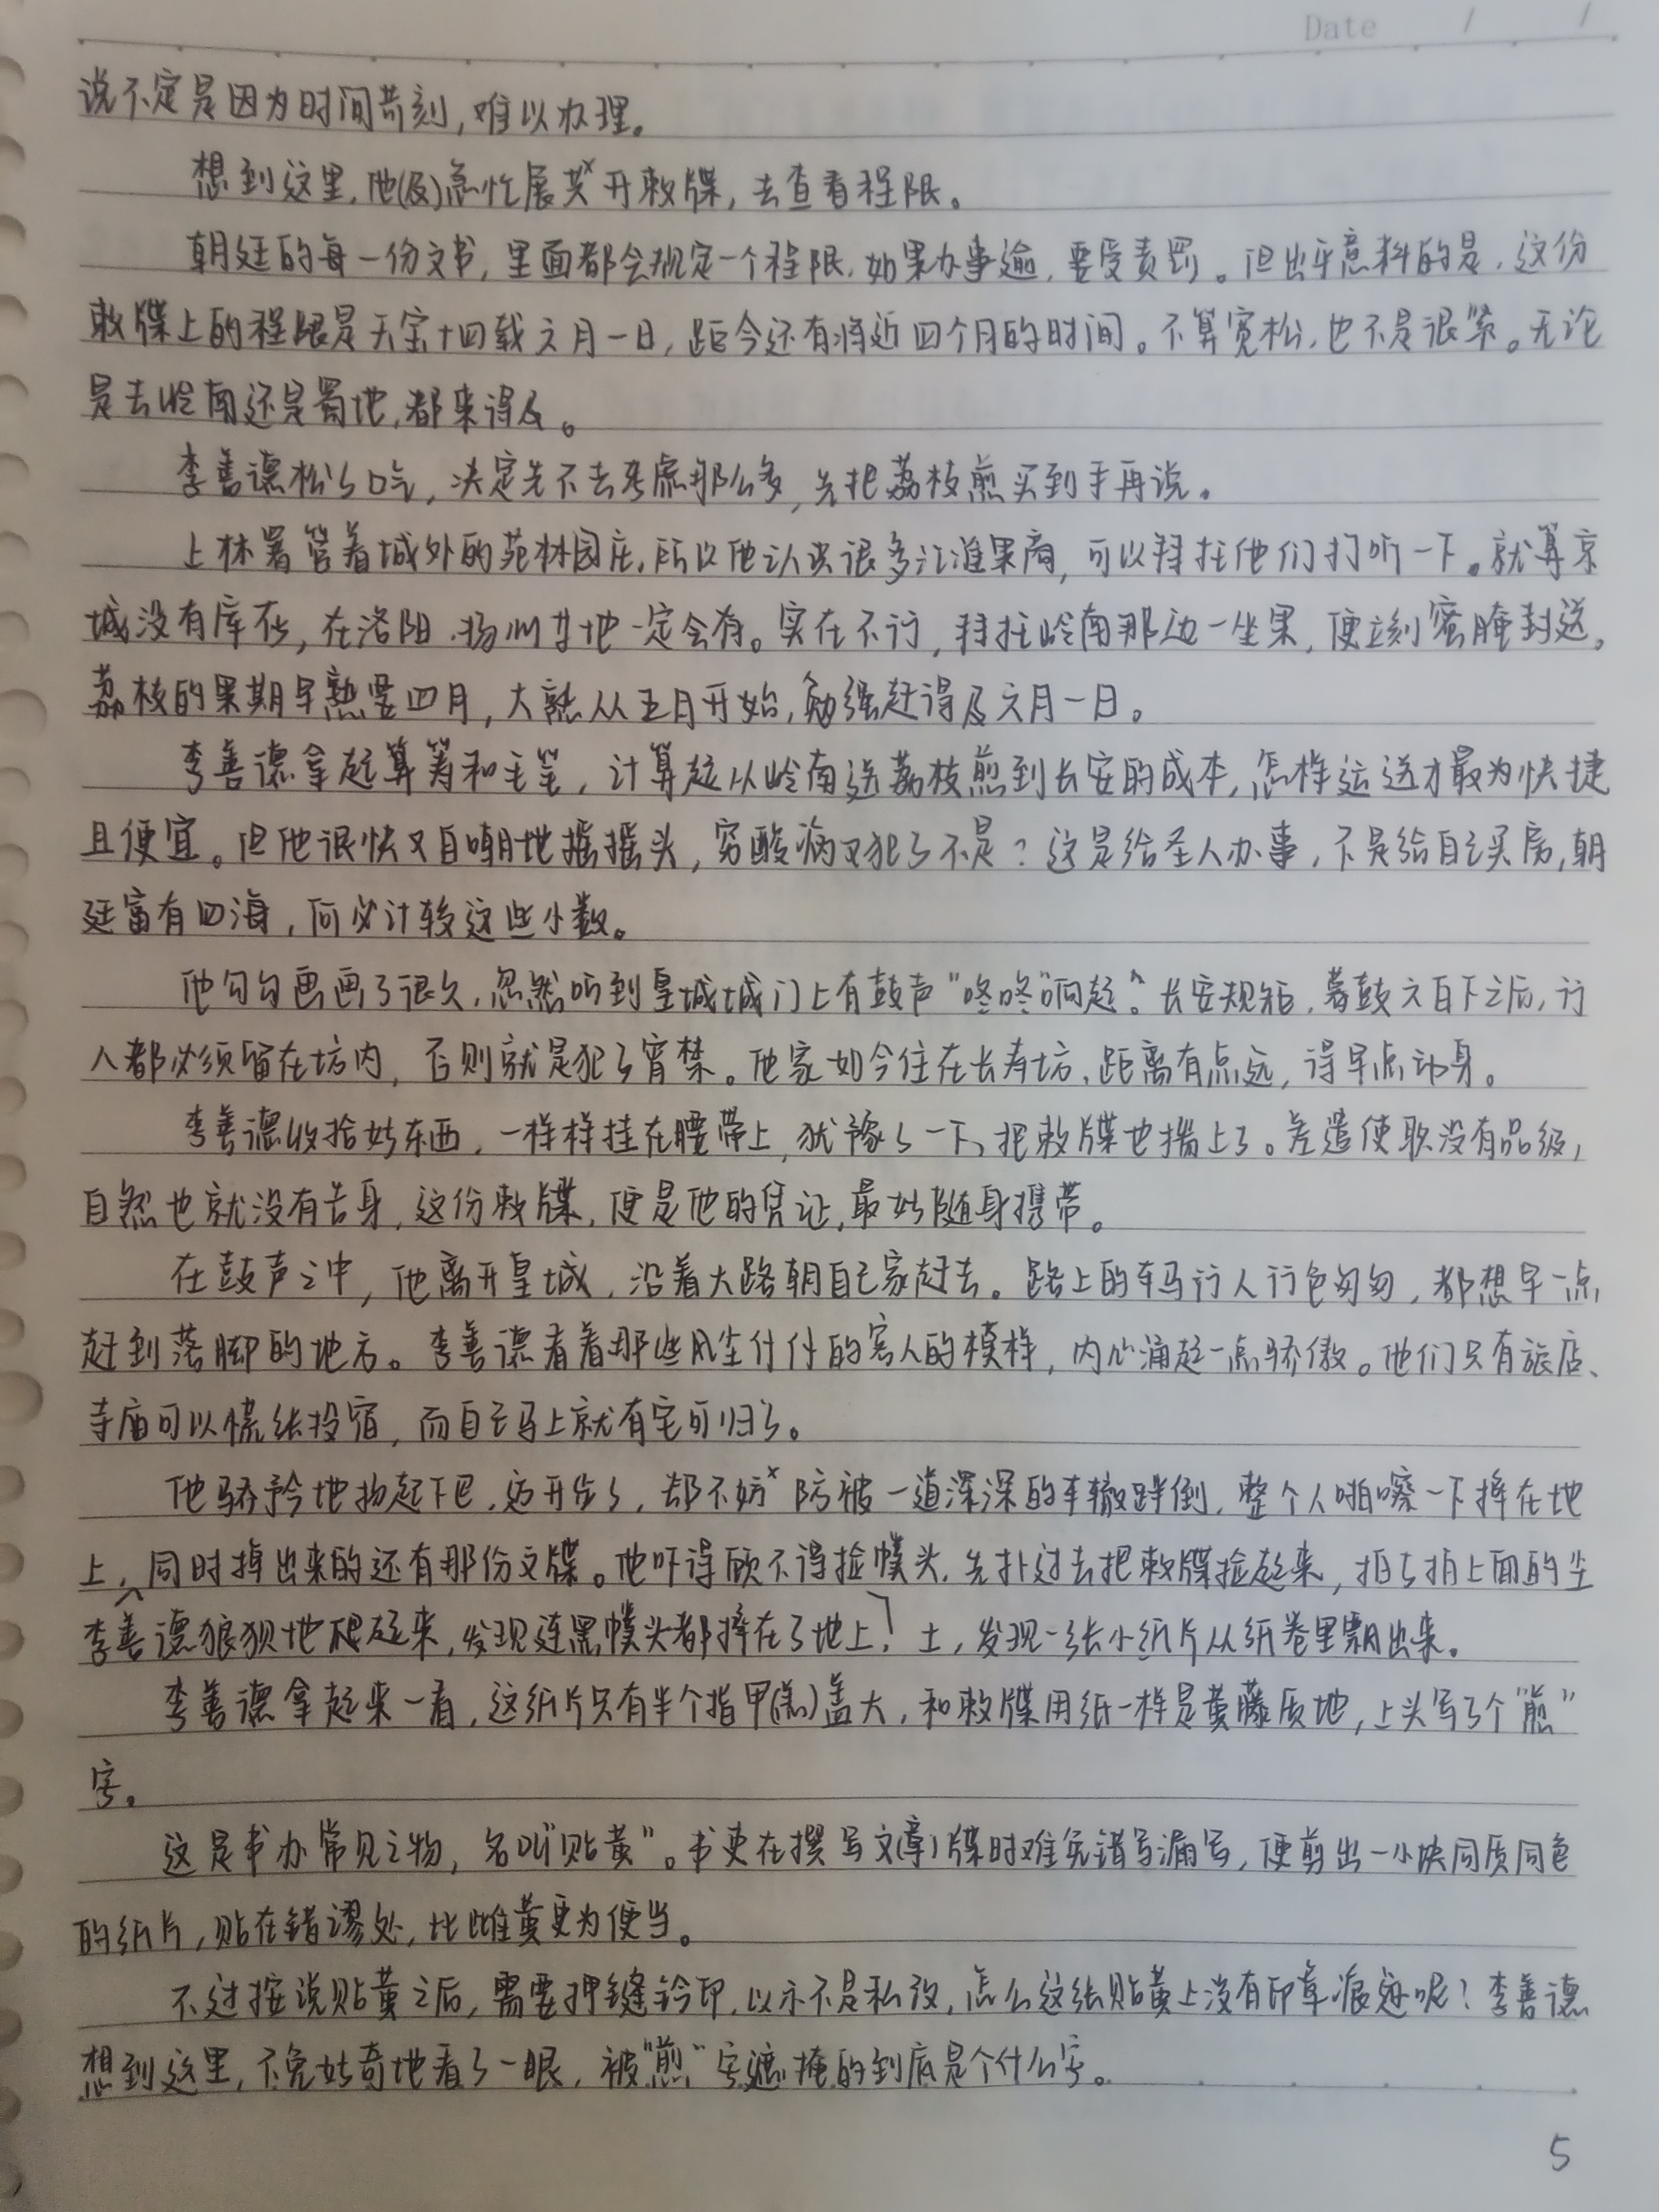 Date / /
说不定是因为时间苛刻,难以办理。
想到这里,他(及)急忙展关×开敕牒,去查看程限。
朝廷的每一份文书,里面都会规定一个程限,如果办事逾,要受责罚。但出乎意料的是,这份
敕牒上的程限是天宝十四载六月一日,距今还有将近四个月的时间。不算宽松,也不是很紧。无论
是去岭南还是蜀地,都来得及。
李善德松了口气,决定先不去考虑那么多,先把荔枝煎买到手再说。
上林署管着城外的苑林园庄,所以他认识很多江淮果商,可以拜托他们打听一下。就算京
城没有库存,在洛阳、扬州等地一定会有。实在不行,拜托岭南那边一坐果,便立刻蜜腌封送。
荔枝的果期早熟是四月,大熟从五月开始,勉强赶得及六月一日。
李善德拿起算筹和毛笔,计算起从岭南送荔枝煎到长安的成本,怎样运送才最为快捷
且便宜。但他很快又自嘲地摇摇头,穷酸病又犯了不是?这是给圣人办事,不是给自己买房,朝
廷富有四海,何必计较这些小数。
他勾勾画画了很久,忽然听到皇城城门上有鼓声“咚咚”响起^。长安规矩,暮鼓六百下之后,行
人都必须留在坊内,否则就是犯了宵禁。他家如今住在长寿坊,距离有点远,得早点动身。
李善德收拾好东西,一样样挂在腰带上,犹豫了一下,把敕牒也揣上了。差遣使职没有品级,
自然也就没有告身,这份敕牒,便是他的凭证,最好随身携带。
在鼓声之中,他离开皇城,沿着大路朝自己家赶去。路上的车马行人行色匆匆,都想早一点
赶到落脚的地方。李善德看着那些风尘仆仆的客人的模样,内心涌起一点骄傲。他们只有旅店、
寺庙可以慌张投宿,而自己马上就有宅可归了。
他骄矜地扬起下巴,迈开步子,却不妨×防被一道深深的车辙绊倒,整个人啪嚓一下摔在地
上,同时掉出来的还有那份文牒。他吓得顾不得捡幞头,先扑过去把敕牒捡起来,拍了拍上面的尘
李善德狼狈地爬起来,发现连黑幞头都摔在了地上,土,发现一张小纸片从纸卷里飘出来。
李善德拿起来一看,这纸片只有半个指甲(盖)盖大,和敕牒用纸一样是黄藤质地,上头写了个“煎”
字。
这是书办常见之物,名叫“贴黄”。书吏在撰写文(章)牒时难免错写漏写,便剪出一小块同质同色
的纸片,贴在错谬处,比雌黄更为便当。
不过按说贴黄之后,需要押缝钤印,以示不是私改,怎么这张贴黄上没有印章痕迹呢?李善德
想到这里,不免好奇地看了一眼,被“煎”字遮掩的到底是个什么字。
5